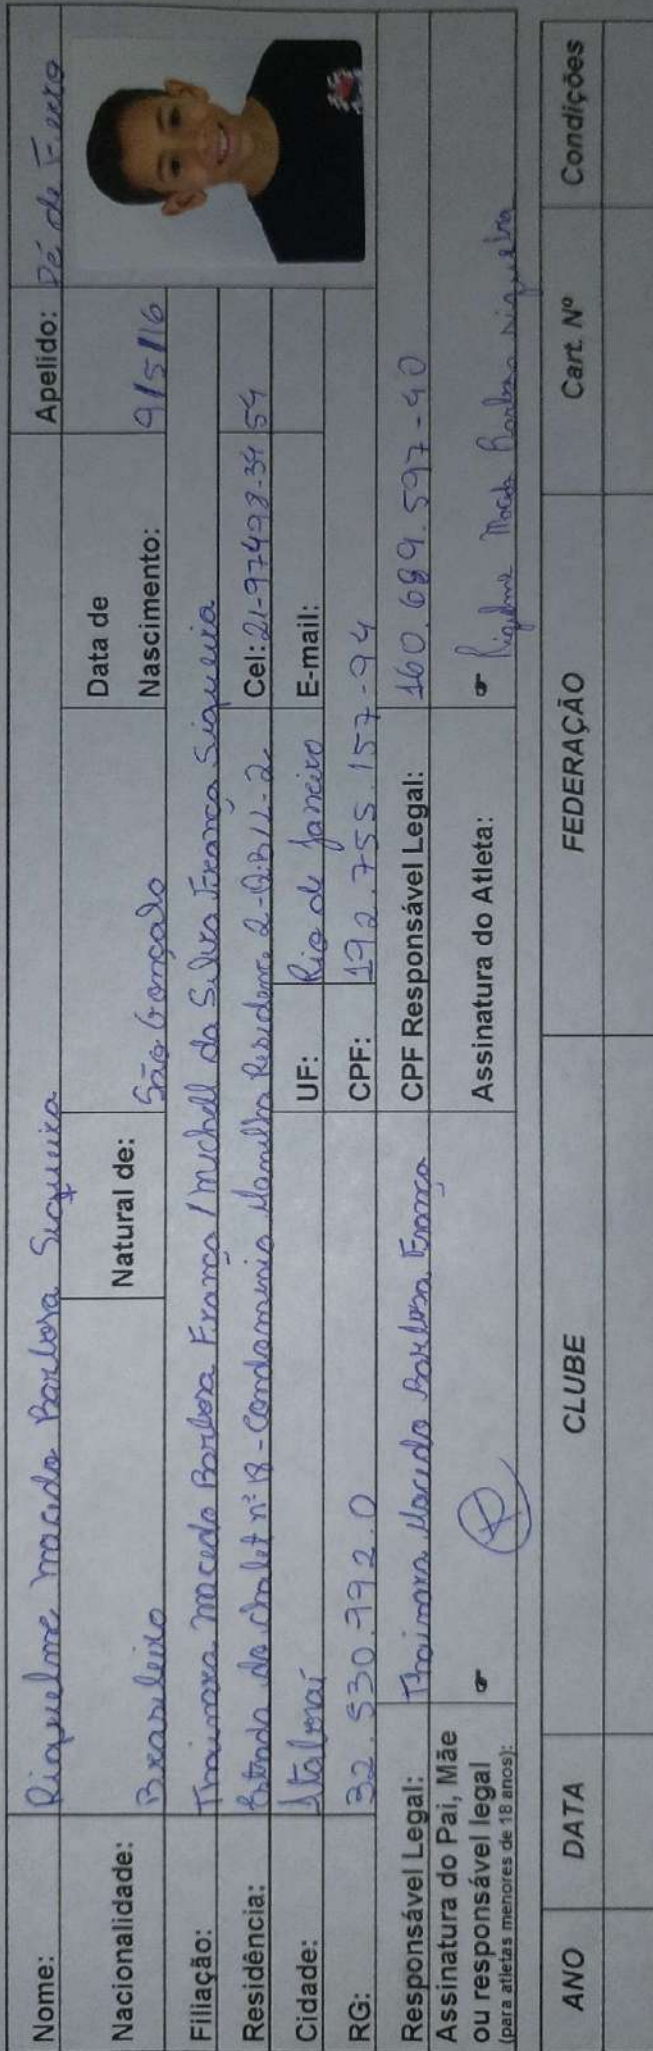 Nome: Riquelme macedo Barbosa Siqueira Apelido: Pé de Ferro
Nacionalidade: Brasileiro Natural de: São Gonçalo Data de Nascimento: 9/5/16
Filiação: Thaimara macedo Barbosa França / Michell da Silva França Siqueira
Residência: Estrada do chalet nº 18 - Condominio Manilha Residence 2 - Q:B/L-2 Cel: 21-97498-3454
Cidade: Itaboraí UF: Rio de Janeiro E-mail:
RG: 32.530.992.0 CPF: 192.755.157-94
Responsável Legal: Thaimara Macedo Barbosa França CPF Responsável Legal: 160.689.597-40
Assinatura do Pai, Mãe
ou responsável legal ☞ Assinatura do Atleta: ☞ Riquelme Macedo Barbosa Siqueira
(para atletas menores de 18 anos):
ANO DATA CLUBE FEDERAÇÃO Cart. Nº Condições